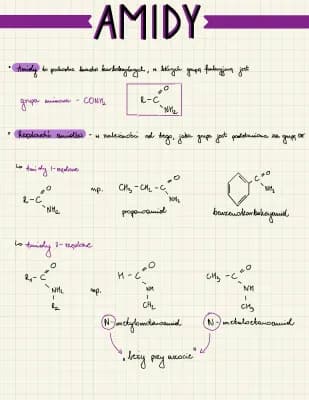 AMIDY
• Amidy to pochodne kwasów karboksylowych, w których grupą funkcyjną jest
grupa amidowa - CONH₂
R-C
O
NH₂
• Rzędowość amidów - w zależności od tego, jaka grupa jest podstawiona za grupę OH
↳ amidy 1-rzędowe
R-C
O
NH₂
np.
CH₃-CH₂-C
O
NH₂
propanoamid
C
O
NH₂
benzenokarboksyamid
↳ amidy 2-rzędowe
R₁-C
O
NH₂
R₂
np.
H-C
O
NH
CH₂
N-metylometanoamid
CH₃-C
O
NH
CH₃
N-metyloetanoamid
"leży przy azocie"